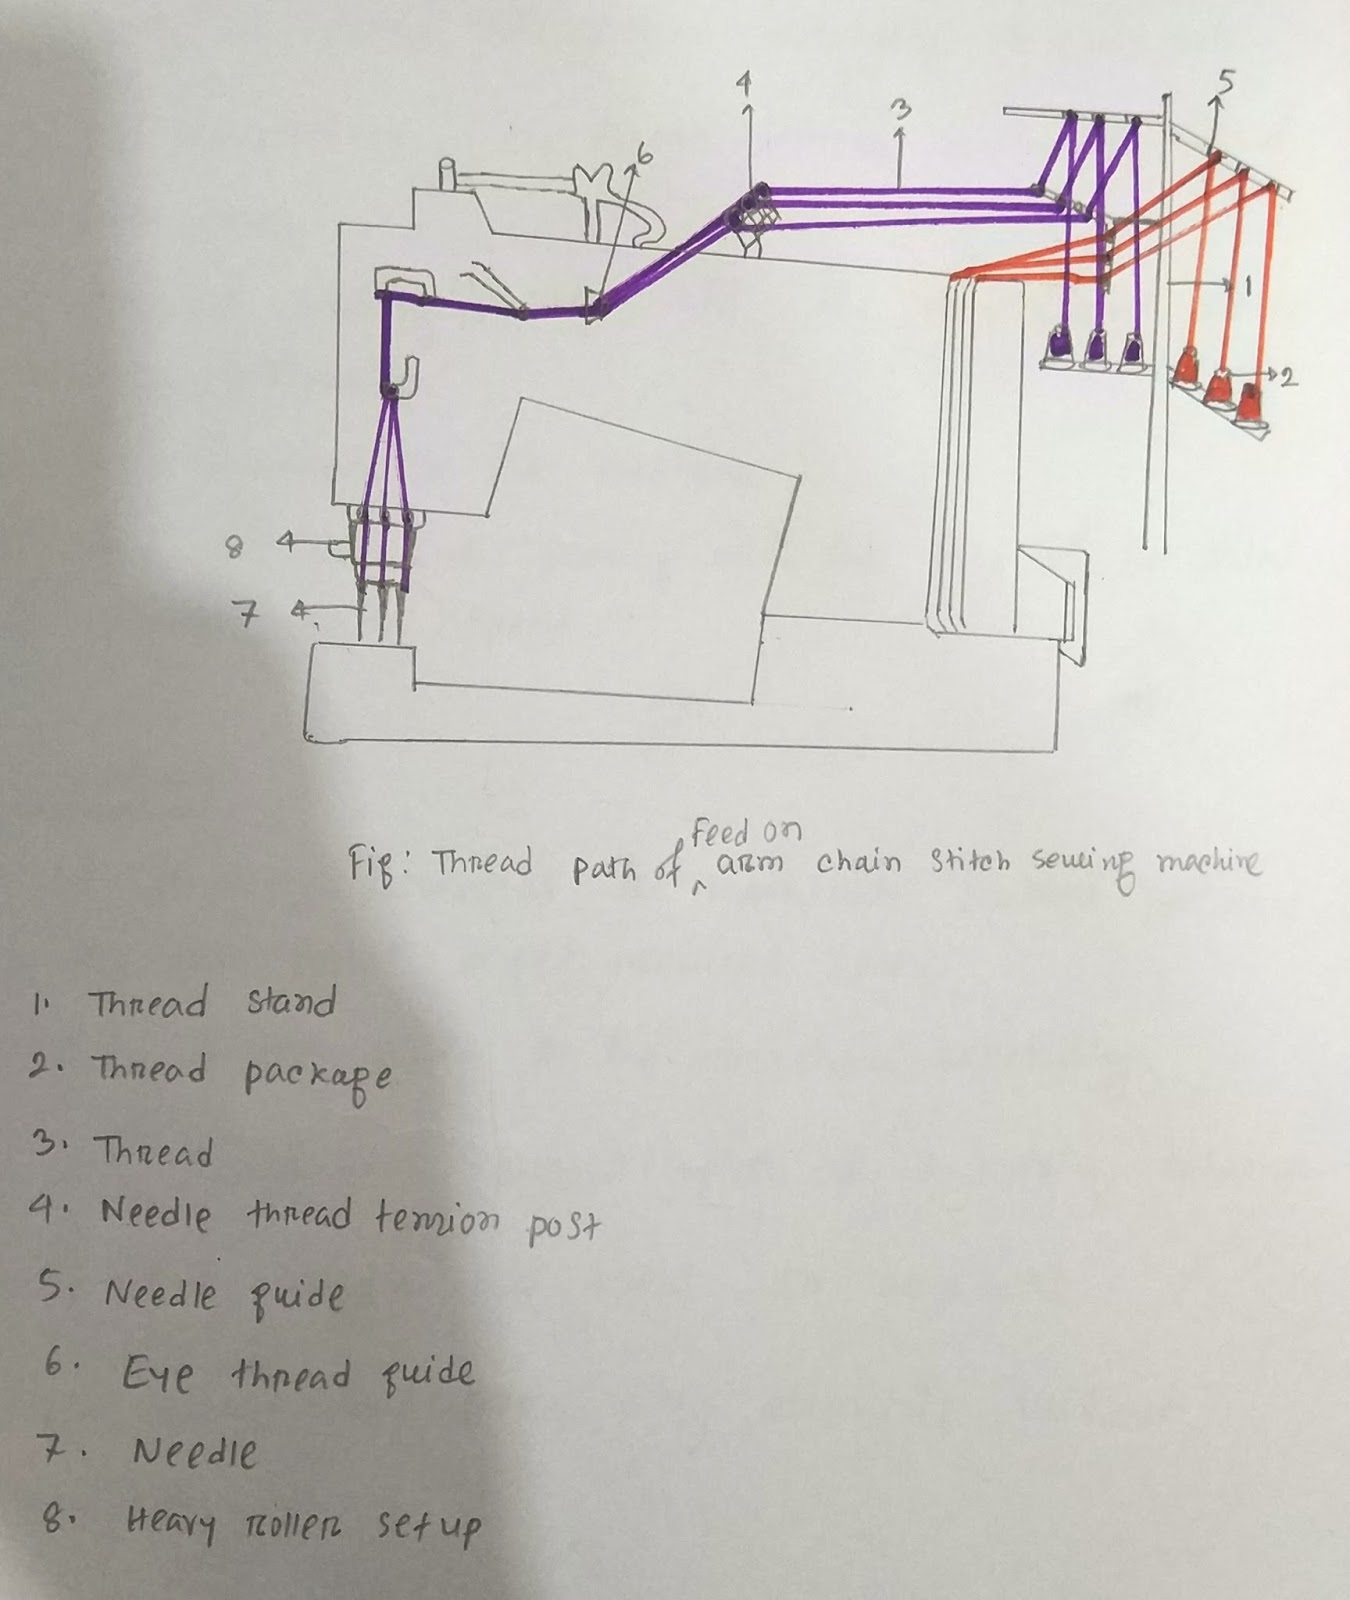 4
5
3
6
1
2
8
7
Feed on
Fig: Thread path of ^ arm chain stitch sewing machine
1. Thread stand
2. Thread package
3. Thread
4. Needle thread tension post
5. Needle guide
6. Eye thread guide
7. Needle
8. Heavy roller set up